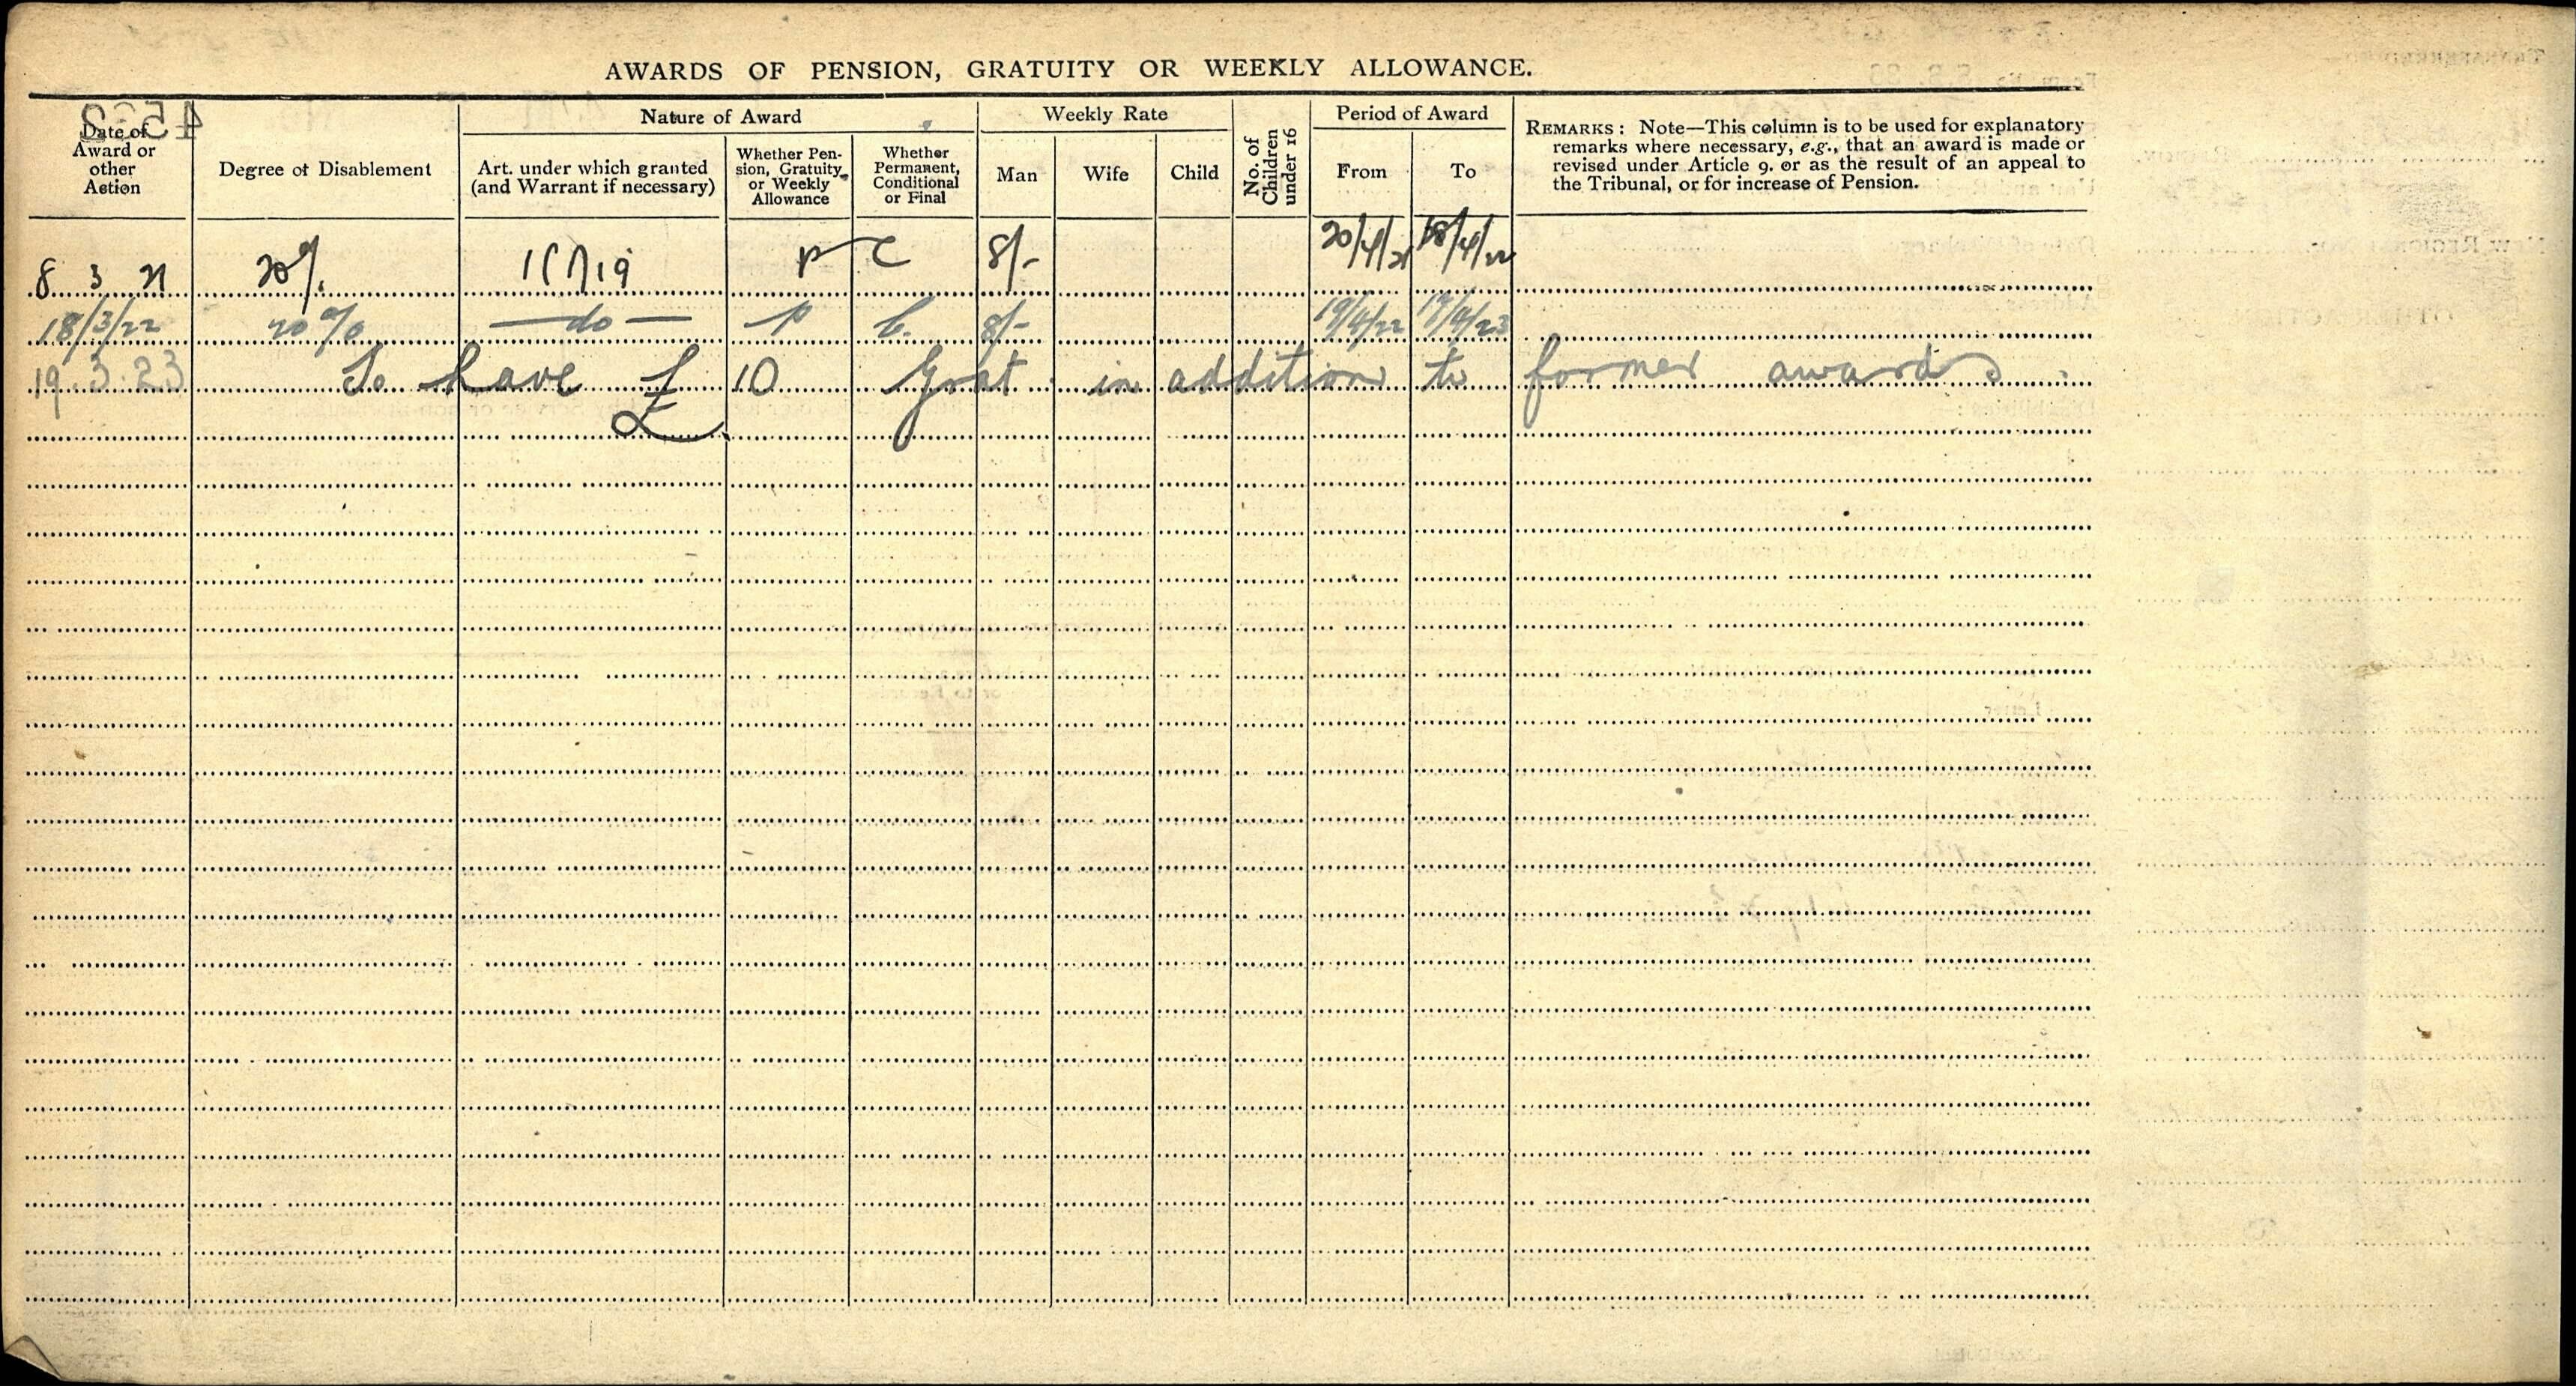 AWARDS OF PENSION, GRATUITY OR WEEKLY ALLOWANCE.
Nature of Award
Weekly Rate
Period of Award
Date of
Award or
other
Action
Degree of Disablement
Art. under which granted
(and Warrant if necessary)
Whether Pen-
sion, Gratuity
or Weekly
Allowance
Whether
Permanent,
Conditional
or Final
Man
Wife
Child
No. of
Children
under 16
From
To
REMARKS: Note—This column is to be used for explanatory
remarks where necessary, e.g., that an award is made or
revised under Article 9. or as the result of an appeal to
the Tribunal, or for increase of Pension.
8 3 21 20% 1(1)19 P C 8/- 20/4/21 18/4/22
18/3/22 20% —do— P C. 8/- 19/4/22 17/4/23
19.3.23 To have £10 Grat in addition to former awards.